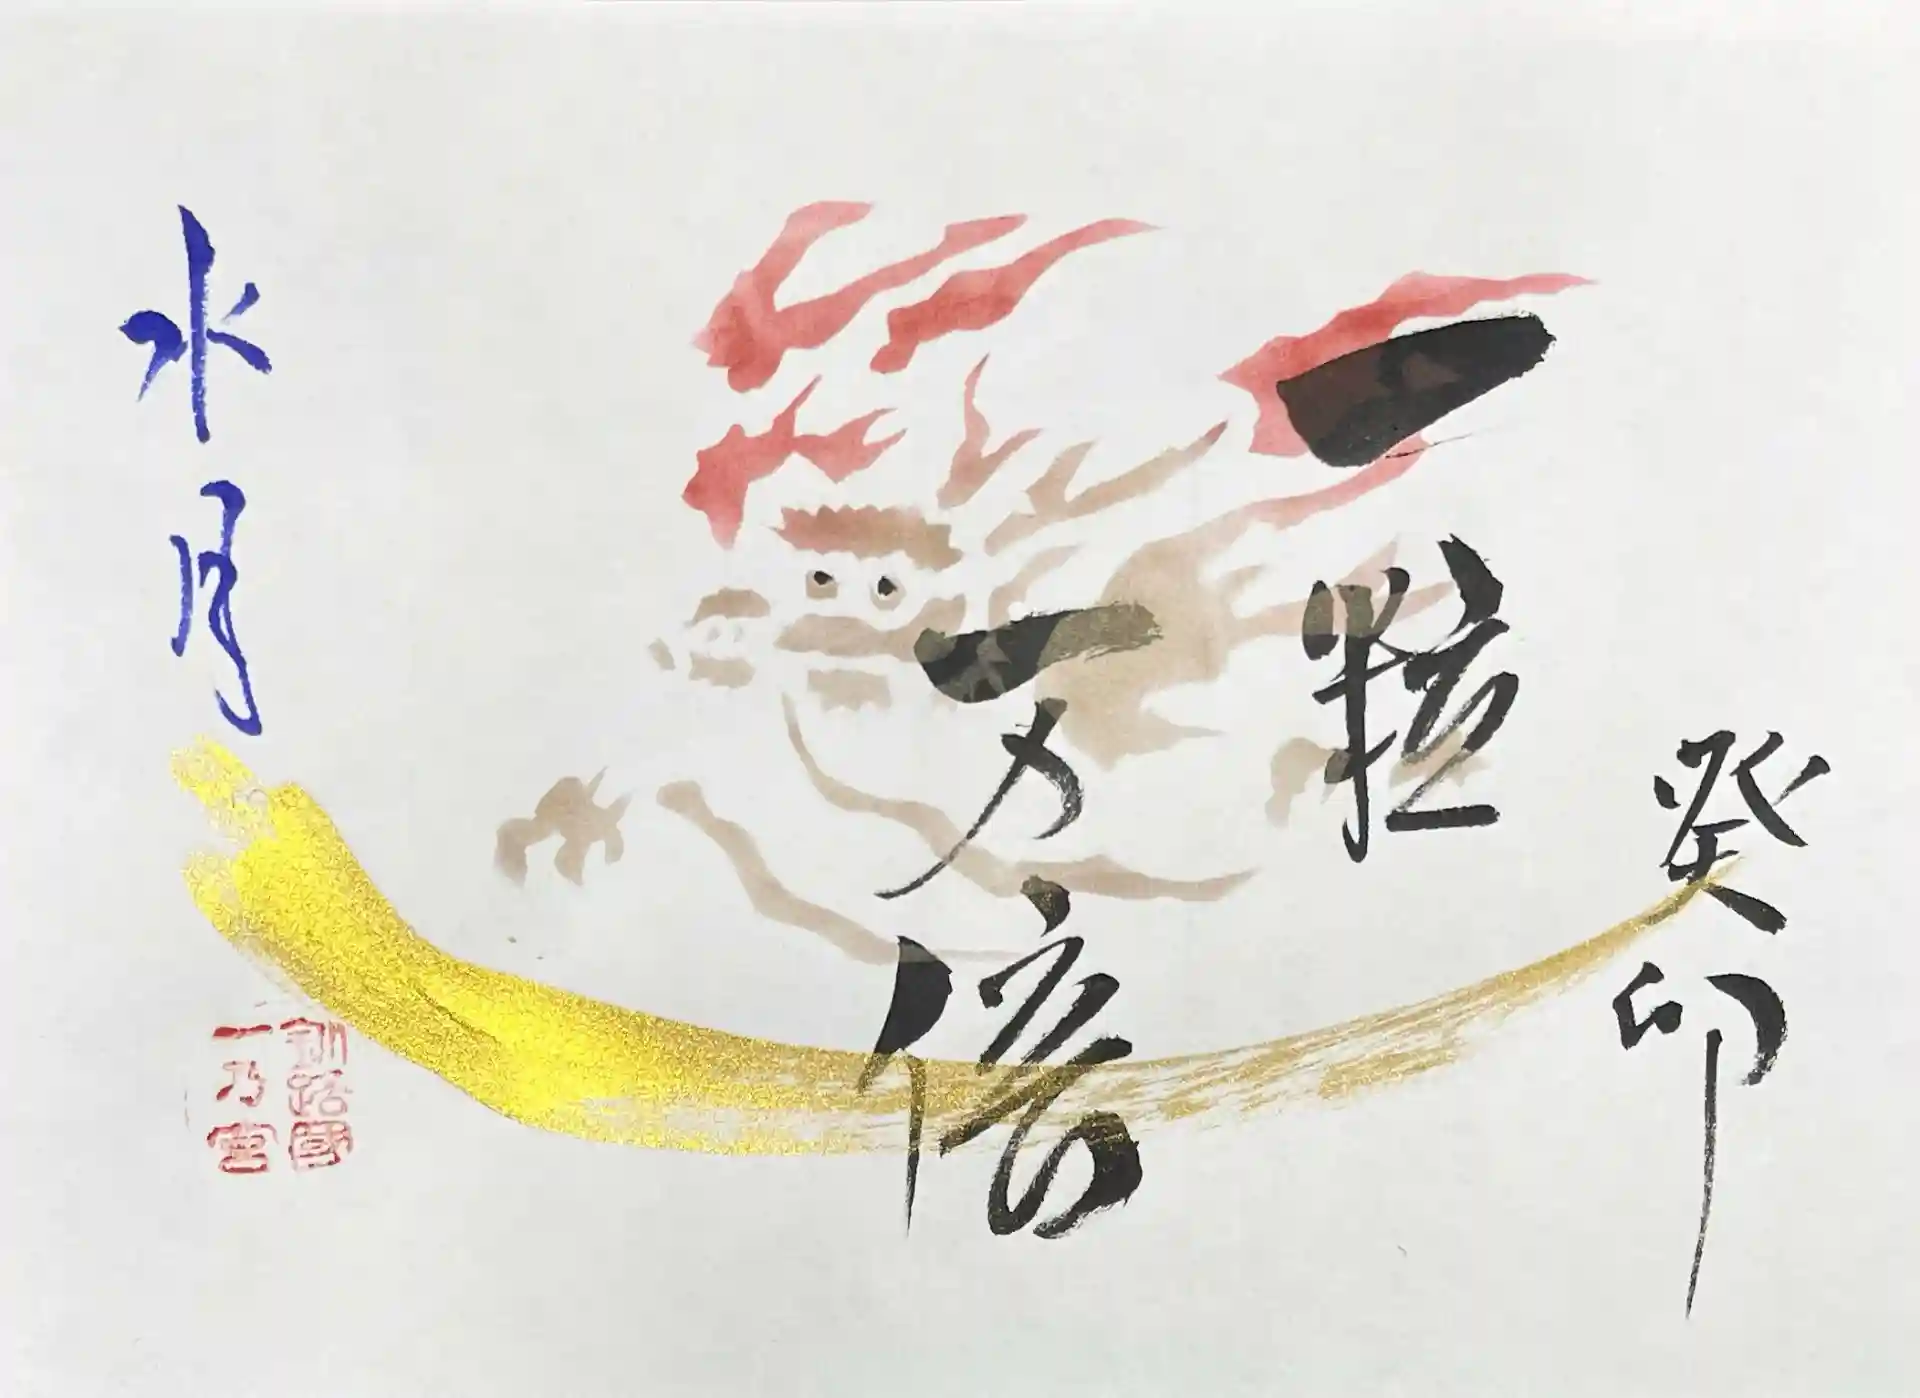 癸卯
一粒
万倍
水月
釧路國
一乃宮